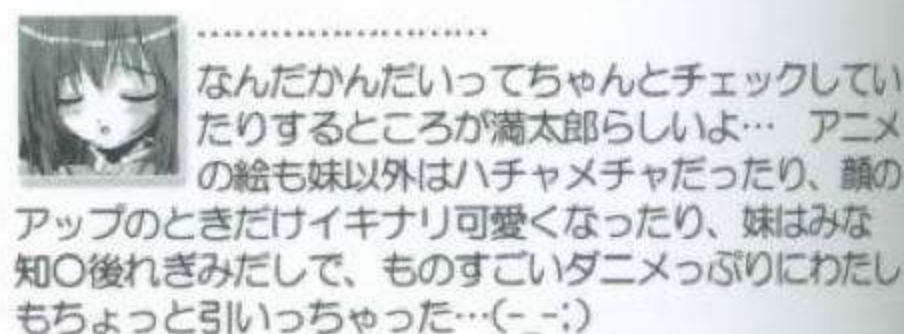 ……………………
なんだかんだいってちゃんとチェックしてい
たりするところが満太郎らしいよ… アニメ
の絵も妹以外はハチャメチャだったり、顔の
アップのときだけイキナリ可愛くなったり、妹はみな
知〇後れぎみだしで、ものすごいダニメっぷりにわたし
もちょっと引いっちゃった…(-_-;)